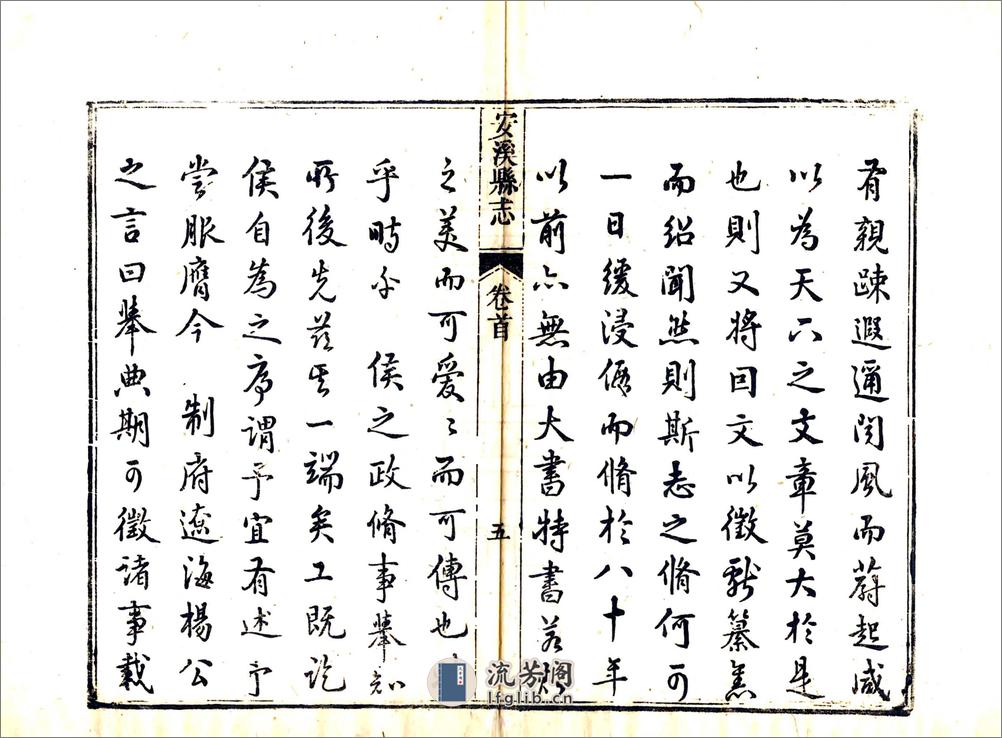 有親踈遐邇閱風而蔚起咸
以為天下之文章莫大於是
也則又將因文以徵獻纂舊
而紹聞然則斯志之脩何可
一日緩浸假而脩於八十年
以前亦無由大書特書若
安溪縣志
卷首
五
之美而可愛〻而可傳也
乎時乎 侯之政脩事舉知
所後先茲其一端矣工既訖
侯自為之序謂予宜有述予
嘗服膺今 制府遼海楊公
之言曰舉典期可徵諸事載
流芳阁
lfglib.cn